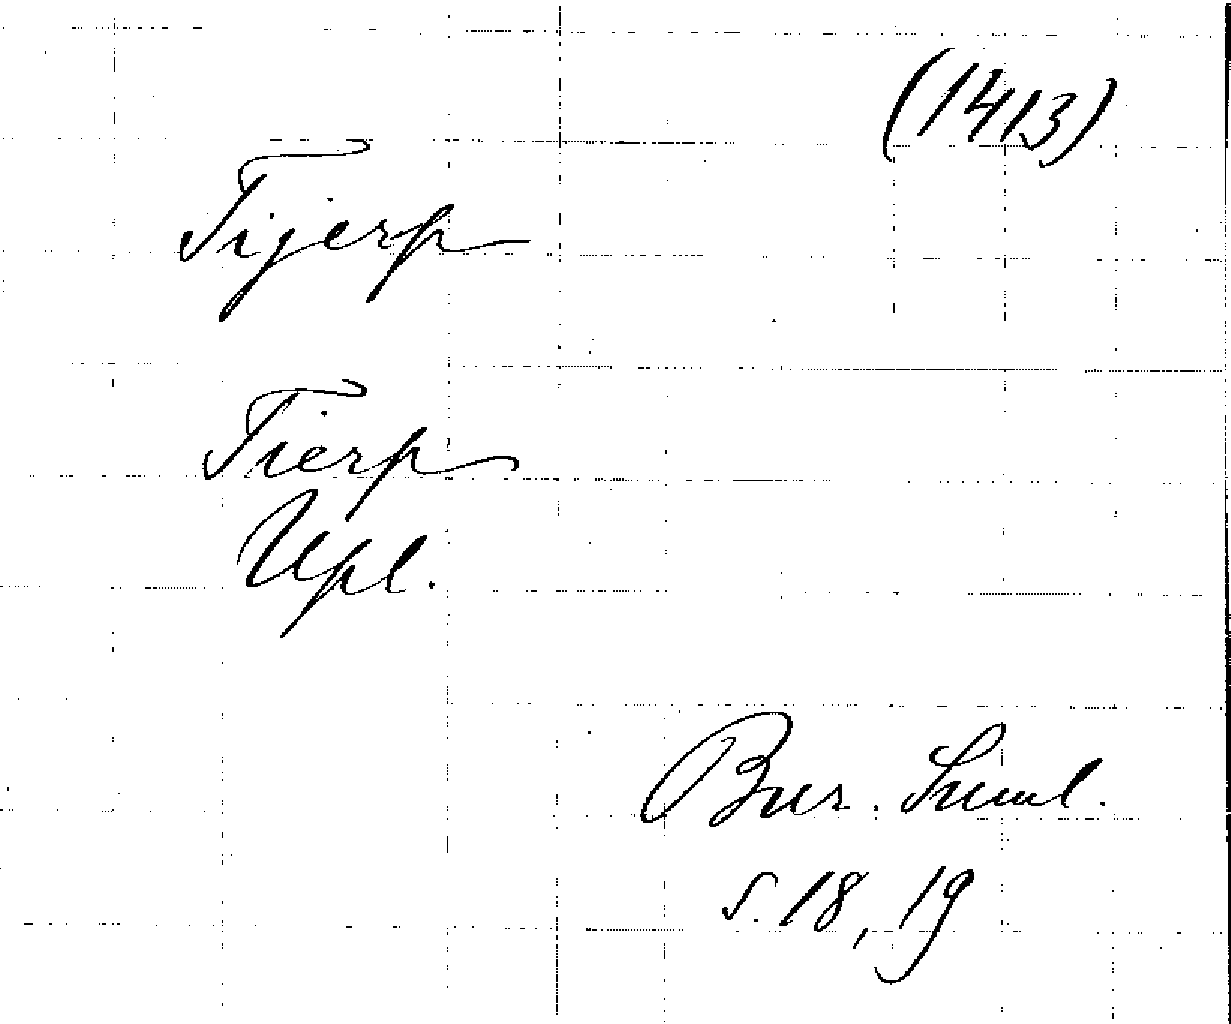 (1413)
Tijerp
Tierp
Upl.
Bur. Suml.
s. 18, 19